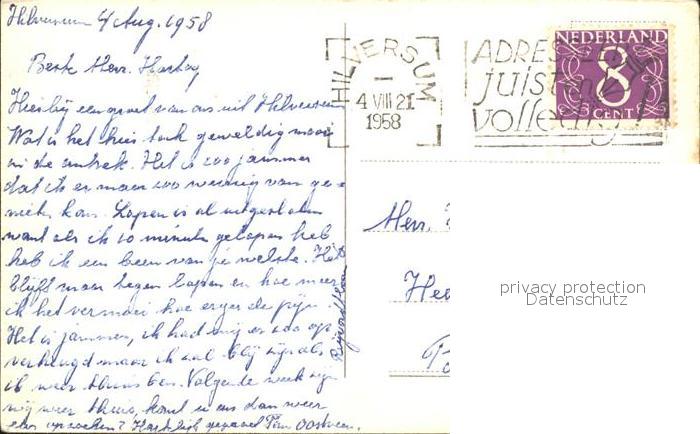 Hilversum 4 Aug. 1958
Beste Heer. Hartog
Hierbij een groet van ons uit Hilversum
Wat is het hier toch geweldig mooi
in de omtrek. Het is zoo jammer
dat ik er maar zoo weinig van ge=
nieten kan. Loopen is al uitgesloten
want als ik 10 minuten geloopen heb
heb ik een been van je welste. Het
blijft maar tegen loopen en hoe meer
ik het vermoei hoe erger de pijn
Het is jammer, ik had mij er zoo op
verheugd maar ik zal blij zijn als
ik weer thuis ben. Volgende week zijn
wij weer thuis, komt u ons dan weer
eens opzoeken? Hartelijk gegroet Oostveen.
HILVERSUM
4 VIII 21
1958
ADRES
juist
volledig
NEDERLAND
8
CENT
Heer.
Hee
privacy protection
Datenschutz